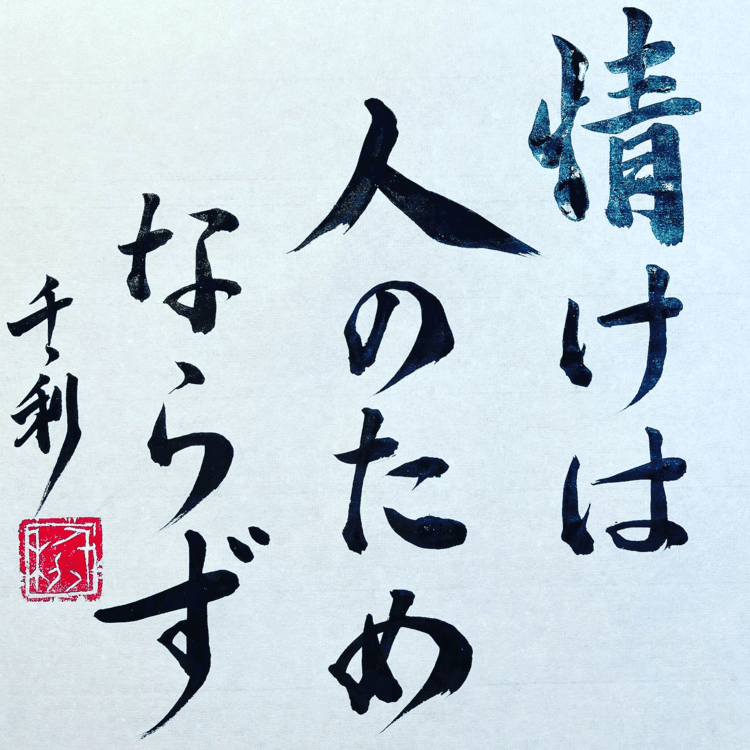 情けは
人のため
ならず
千利